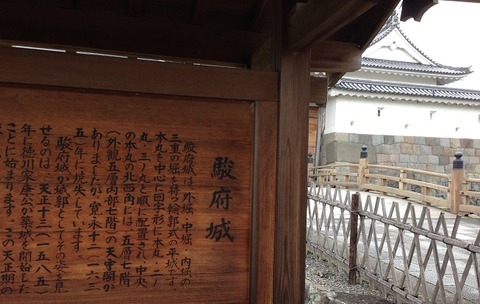 駿府城
駿府城は、外堀、中堀、内堀の
三重の堀を持つ輪郭式の平城です。
本丸を中心に回字形に本丸、二ノ
丸、三ノ丸と順に配置され、中央
の本丸の北西角には、五層七階
(外観五層内部七階)の天守閣が
ありましたが、寛永十二(一六三
五)年に焼失しています。
駿府城の城郭としてその姿を現
せるのは、天正十三(一五八五)
年に徳川家康公が築城を開始した
ことに始まります。この天正期の